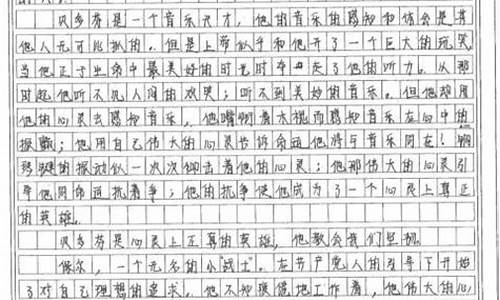 贝多芬是一个音乐天才，他的音乐的感知和体会是其
他人无可比拟的。但是上帝似乎和他开了一个巨大的玩笑，
当他正于生命中最美好的时光时夺走了他的听力。从那
时起他听不见人间的欢笑；听不到美妙的音乐。但他却用
他的心灵去感知音乐，他嘴啣着木棍而感知音乐在心中的
振颤；他用自己伟大的心灵告诉命运他将与音乐同在！钢
琴键的振动似一次次叩击着他的心灵；他那伟大的心灵引
导他同命运抗着争；他的抗争使他成为了一个心灵上真正
的英雄。
贝多芬是心灵上正真的英雄，他教会我们坚韧。
保尔，一个无名的小“战士”。在共产党人的引导下开始
了对自己理想的追求。他不知疲倦地工作着，他伟大的心